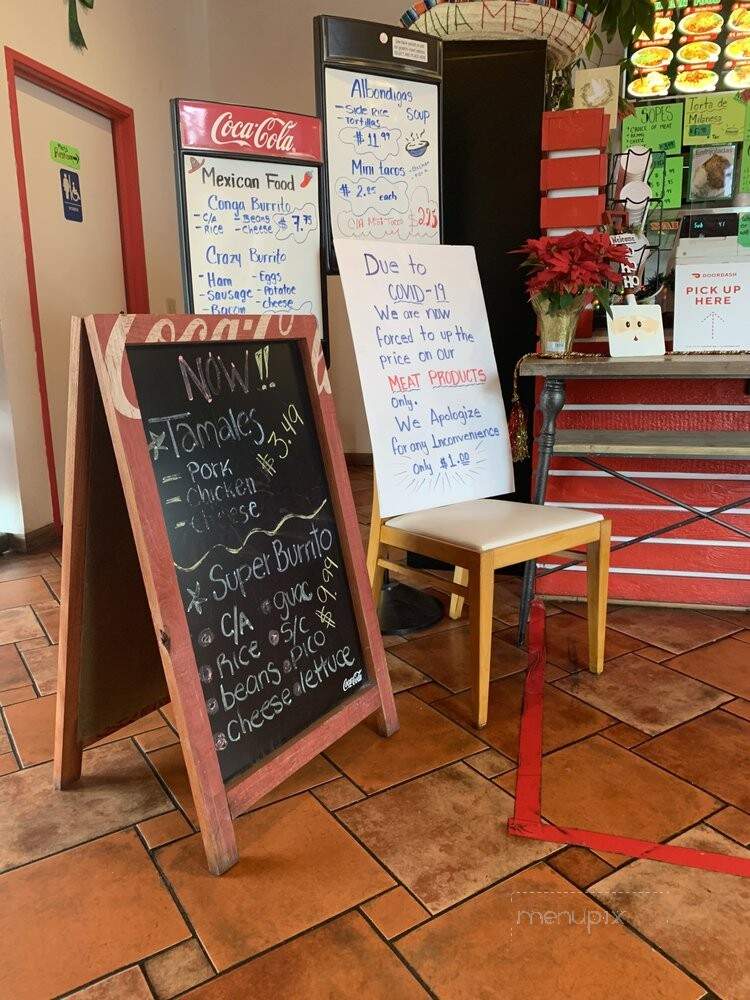 VIVA MEXICO
Coca-Cola
Mexican Food
Conga Burrito
- C/A - Beans
- Rice - cheese
$7.75
Crazy Burrito
- Ham - Eggs
- Sausage - Potato
- Bacon - cheese
Albondigas
Soup
- Side Rice
- Tortillas
$11.99
Mini tacos
$2.25 each
Due to
COVID-19
We are now
forced to up the
price on our
MEAT PRODUCTS
only.
We Apologize
for any Inconvenience
only $1.00
NOW!!
Tamales
$3.49
- Pork
- Chicken
- Cheese
Super Burrito
$9.99
C/A guac
Rice S/C
beans Pico
cheese lettuce
Coca-Cola
SOPES
Torta de
Milanesa
Welcome
HO
HO
DOORDASH
PICK UP
HERE
menupix